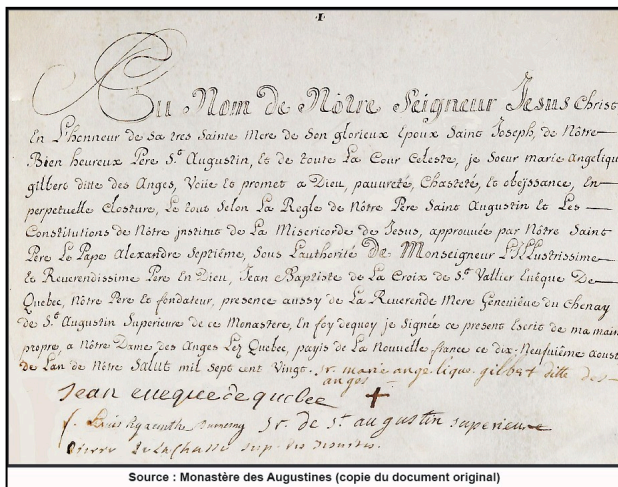 .I.
Au Nom de Nôtre Seigneur Jesus Christ
En L'honneur de sa tres Sainte Mere de Son glorieux Epoux Saint Joseph, de Nôtre
Bien heureux Père St. Augustin, Et de toute La Cour Celeste, je Soeur marie Angelique
gilbert ditte des Anges, Voüe Et promet a Dieu, pauureté, Chasteté, Et obeÿssance, En
perpetuelle Closture, Le tout Selon La Regle de Nôtre Père Saint Augustin Et Les
Constitutions de Nôtre jnstitut de La Misericorde de Jesus, approuuée par Nôtre Saint
Père Le Pape Alexandre Septième, Sous L'authorité De Monseigneur L'Illustrissime
Et Reverendissime Pere En Dieu, Jean Baptiste de La Croix de St. Vallier Euêque De
Quebec, Nôtre Pere Et fondateur, presence aussy de La Reverende Mere Geneviéue du Chenay
de St. Augustin Superieure de ce Monastere, En foy dequoy je Signée ce present Escrit de ma main
propre, a Nôtre Dame des Anges Lez Quebec, payis de La Nouvelle france ce dix: Neufuième Aoust
de L'an de Nôtre Salut mil Sept cent Vingt. sr. marie angelique gilbert ditte des
anges
Jean eueque de quebec +
f. Louis Hyacinthe Sr. de St. augustin superieure
pierre de la chasse sup. des
Source : Monastère des Augustines (copie du document original)